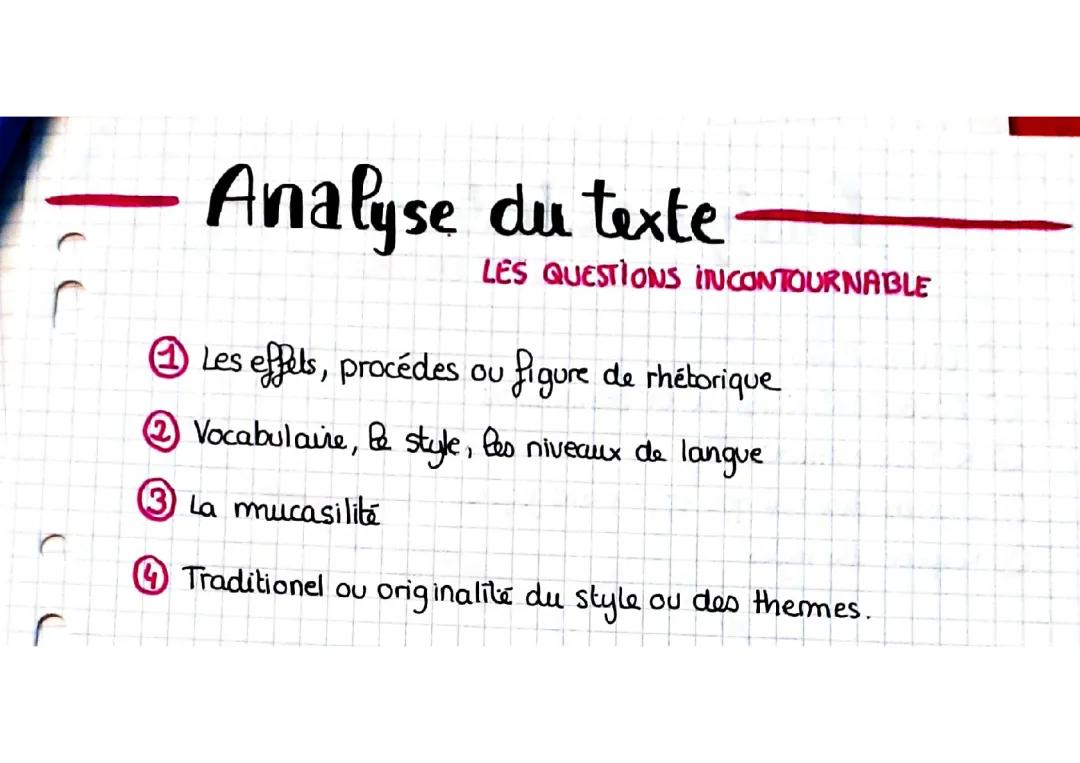 Analyse du texte
LES QUESTIONS INCONTOURNABLE
1 Les effets, procédes ou figure de rhétorique
2 Vocabulaire, le style, les niveaux de langue
3 La mucasilité
4 Traditionel ou originalité du style ou des themes.